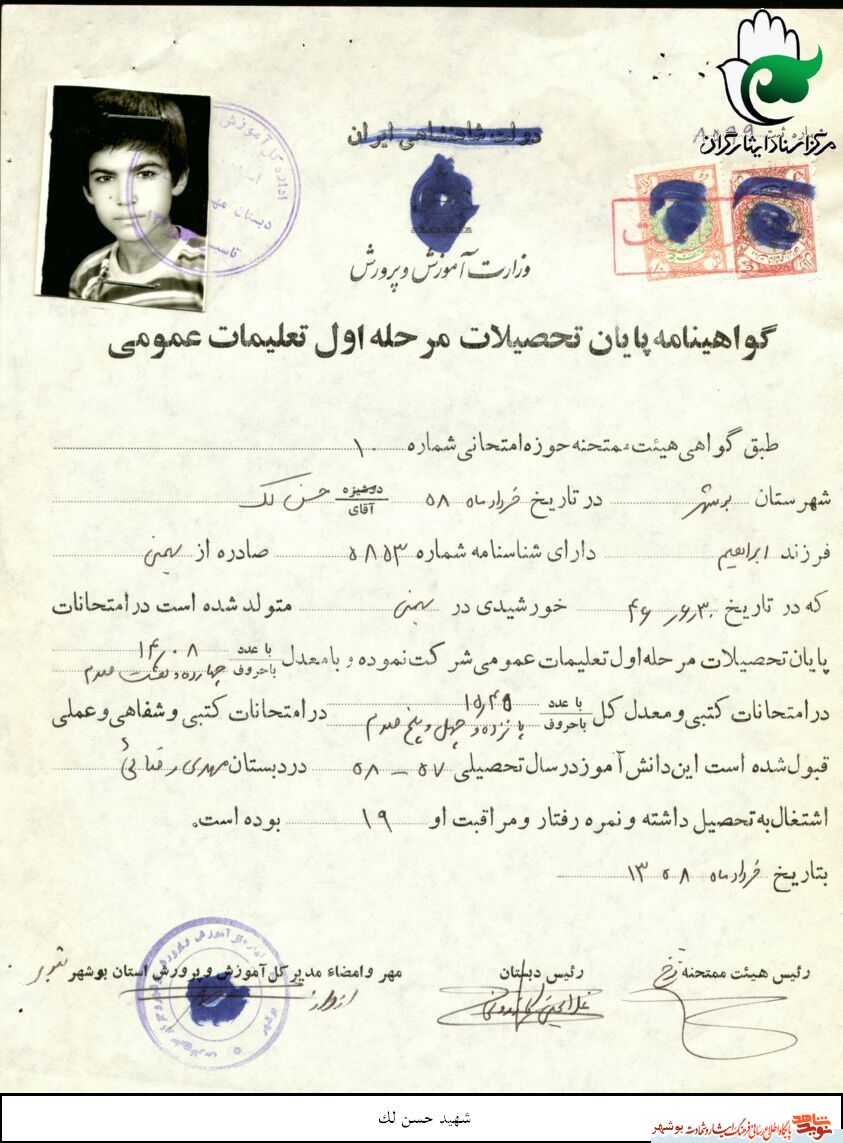 دولت شاهنشاهی ایران
مرکز اسناد ایثارگران
وزارت آموزش و پرورش
گواهینامه پایان تحصیلات مرحله اول تعلیمات عمومی
طبق گواهی هیئت ممتحنه حوزه امتحانی شماره ۱۰
شهرستان بوشهر در تاریخ خرداد ماه ۵۸ دوشیزه آقای حسن لک
فرزند ابراهیم دارای شناسنامه شماره ۵۸۵۳ صادره از
که در تاریخ ۴۶٫۶٫۳۰ خورشیدی در متولد شده است در امتحانات
پایان تحصیلات مرحله اول تعلیمات عمومی شرکت نموده و با معدل با عدد ۱۴٫۰۸ با حروف چهارده و هشت صدم
در امتحانات کتبی و معدل کل با عدد ۱۵٫۴۵ با حروف پانزده و چهل و پنج صدم در امتحانات کتبی و شفاهی و عملی
قبول شده است این دانش آموز در سال تحصیلی ۵۷ – ۵۸ در دبستان مهدی رضائی
اشتغال به تحصیل داشته و نمره رفتار و مراقبت او ۱۹ بوده است.
بتاریخ خرداد ماه ۱۳۵۸
رئیس هیئت ممتحنه
رئیس دبستان
مهر و امضاء مدیر کل آموزش و پرورش استان بوشهر
شهید حسن لك
نوید شاهد پایگاه اطلاع رسانی فرهنگ ایثار و شهادت بوشهر